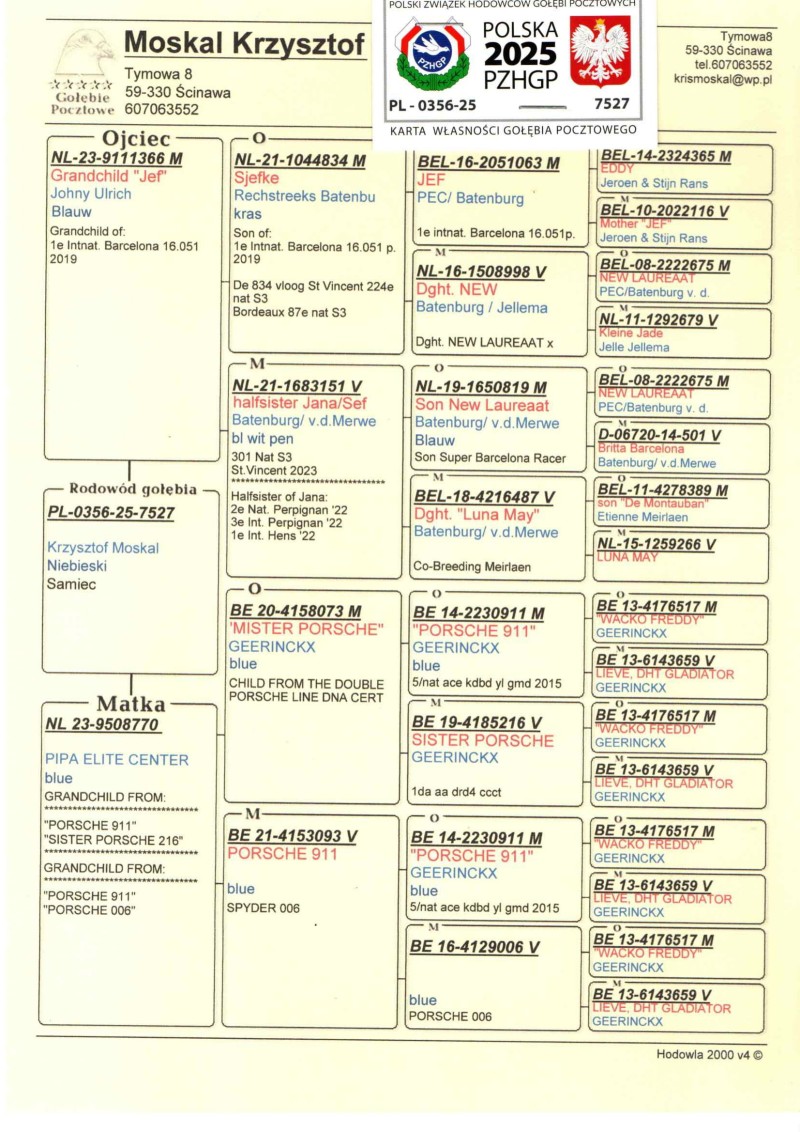 POLSKI ZWIĄZEK HODOWCÓW GOŁĘBI POCZTOWYCH
PZHGP
POLSKA
2025
PZHGP
PL - 0356-25
7527
KARTA WŁASNOŚCI GOŁĘBIA POCZTOWEGO
Gołębie
Pocztowe
Moskal Krzysztof
Tymowa 8
59-330 Ścinawa
607063552
Tymowa8
59-330 Ścinawa
tel.607063552
krismoskal@wp.pl
Ojciec
NL-23-9111366 M
Grandchild "Jef"
Johny Ulrich
Blauw
Grandchild of:
1e Intnat. Barcelona 16.051
2019
Rodowód gołębia
PL-0356-25-7527
Krzysztof Moskal
Niebieski
Samiec
Matka
NL 23-9508770
PIPA ELITE CENTER
blue
GRANDCHILD FROM:
***********************************
"PORSCHE 911"
"SISTER PORSCHE 216"
***********************************
GRANDCHILD FROM:
***********************************
"PORSCHE 911"
"PORSCHE 006"
O
NL-21-1044834 M
Sjefke
Rechstreeks Batenbu
kras
Son of:
1e Intnat. Barcelona 16.051 p.
2019
De 834 vloog St Vincent 224e
nat S3
Bordeaux 87e nat S3
M
NL-21-1683151 V
halfsister Jana/Sef
Batenburg/ v.d.Merwe
bl wit pen
301 Nat S3
St.Vincent 2023
***********************************
Halfsister of Jana:
2e Nat. Perpignan '22
3e Int. Perpignan '22
1e Int. Hens '22
O
BE 20-4158073 M
'MISTER PORSCHE"
GEERINCKX
blue
CHILD FROM THE DOUBLE
PORSCHE LINE DNA CERT
M
BE 21-4153093 V
PORSCHE 911
blue
SPYDER 006
BEL-16-2051063 M
JEF
PEC/ Batenburg
1e intnat. Barcelona 16.051p.
M
NL-16-1508998 V
Dght. NEW
Batenburg / Jellema
Dght. NEW LAUREAAT x
O
NL-19-1650819 M
Son New Laureaat
Batenburg/ v.d.Merwe
Blauw
Son Super Barcelona Racer
M
BEL-18-4216487 V
Dght. "Luna May"
Batenburg/ v.d.Merwe
Co-Breeding Meirlaen
O
BE 14-2230911 M
"PORSCHE 911"
GEERINCKX
blue
5/nat ace kdbd yl gmd 2015
M
BE 19-4185216 V
SISTER PORSCHE
GEERINCKX
1da aa drd4 ccct
O
BE 14-2230911 M
"PORSCHE 911"
GEERINCKX
blue
5/nat ace kdbd yl gmd 2015
M
BE 16-4129006 V
blue
PORSCHE 006
BEL-14-2324365 M
EDDY
Jeroen & Stijn Rans
M
BEL-10-2022116 V
Mother "JEF"
Jeroen & Stijn Rans
O
BEL-08-2222675 M
NEW LAUREAAT
PEC/Batenburg v. d.
M
NL-11-1292679 V
Kleine Jade
Jelle Jellema
O
BEL-08-2222675 M
NEW LAUREAAT
PEC/Batenburg v. d.
M
D-06720-14-501 V
Britta Barcelona
Batenburg/ v.d.Merwe
O
BEL-11-4278389 M
son "De Montauban"
Etienne Meirlaen
M
NL-15-1259266 V
LUNA MAY
O
BE 13-4176517 M
"WACKO FREDDY"
GEERINCKX
M
BE 13-6143659 V
LIEVE, DHT GLADIATOR
GEERINCKX
O
BE 13-4176517 M
"WACKO FREDDY"
GEERINCKX
M
BE 13-6143659 V
LIEVE, DHT GLADIATOR
GEERINCKX
O
BE 13-4176517 M
"WACKO FREDDY"
GEERINCKX
M
BE 13-6143659 V
LIEVE, DHT GLADIATOR
GEERINCKX
O
BE 13-4176517 M
"WACKO FREDDY"
GEERINCKX
M
BE 13-6143659 V
LIEVE, DHT GLADIATOR
GEERINCKX
Hodowla 2000 v4 ©